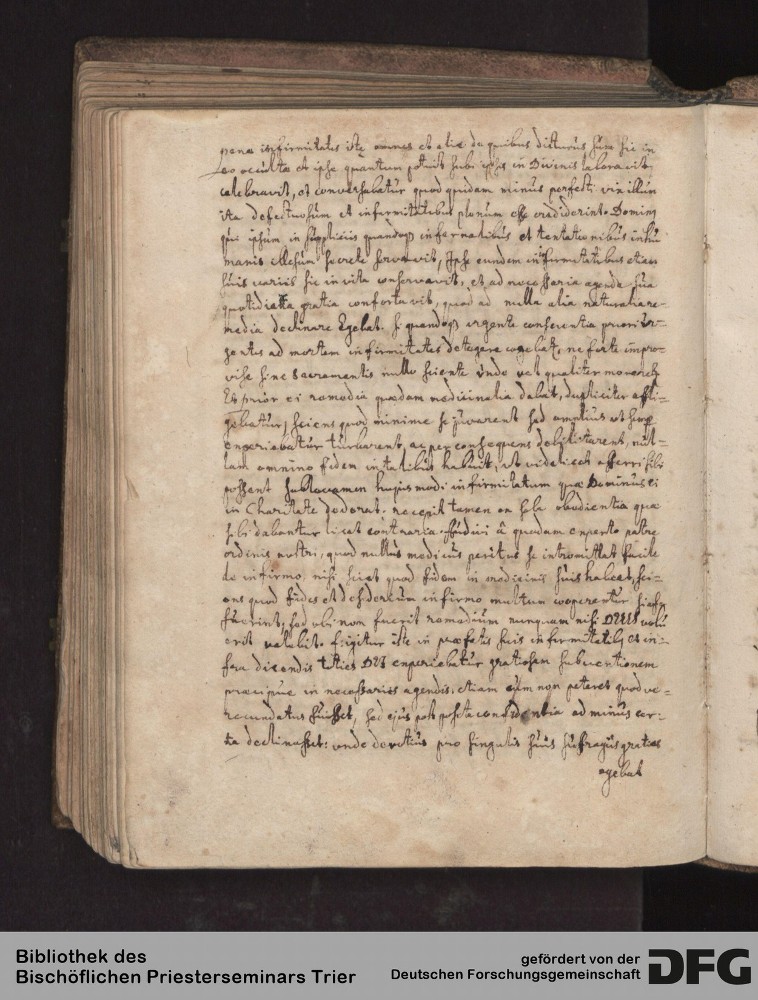 pene infirmitates istę omnes et aliæ de quibus dicturus sum sic in
eo occultæ et ipse quantum potuit sub ipsis in Divinis laboravit,
celebravit, et conversabatur quod quidam minus perfecti vix illum
ita defectuosum et infirmitatibus plenum esse crediderint. Dominus
qui ipsum in suppliciis quandoq infernalibus et tentationibus inhu
manis illesum secrete servavit, Ipse eundem in infirmitatibus etiam
suis variis sic in vita conservavit, et ad necessaria agenda sua
quotidiana gratia confortavit, quod ad nulla alia naturalia re-
media declinare Egebat. si quandoq urgente conscientia priori
ad mortem infirmitates detegere cogebat, ne forte impro=
vise sine Sacramentis nullo sciente unde vel qualiter moreretur
Et prior ei remedia quædam medicinalia dabat, dupliciter affli=
gebatur, sciens quod minime se juvarent sed amplius ut semp
experiebatur turbarent, ac per consequens debilitarent, nul=
lam omnino fidem in talibus habuit, ut videlicet afferri sibi
possent sublevamen hujusmodi infirmitatum quæ Dominus ei
in Charitate dederat. recepit tamen ex sola obedientia quæ
sibi dabantur licet contraria. audivi â quodam experto patre
ordinis nostri, quod nullus medicus peritus se intromittat facile
de infirmo, nisi sciat quod fidem in medicinis suis habeat, sci=
ens quod fides et desiderium infirmo multum cooperentur si
fuerint, sed ubi non fuerit remedium nunquam nisi DEUS volu
erit valebit. igitur iste in præfatis suis infirmitatib et in=
fra dicendis toties experiebatur gratiosam subventionem
præcipue in necessariis agendis. etiam cum non peteret quod ve=
recundatus fuisset, sed ejus post posita confidentia ad minus cer=
ta declinasset: unde devotius pro singulis suis suffragiis gratias
agebat
Bibliothek des
Bischöflichen Priesterseminars Trier
gefördert von der
Deutschen Forschungsgemeinschaft
DFG